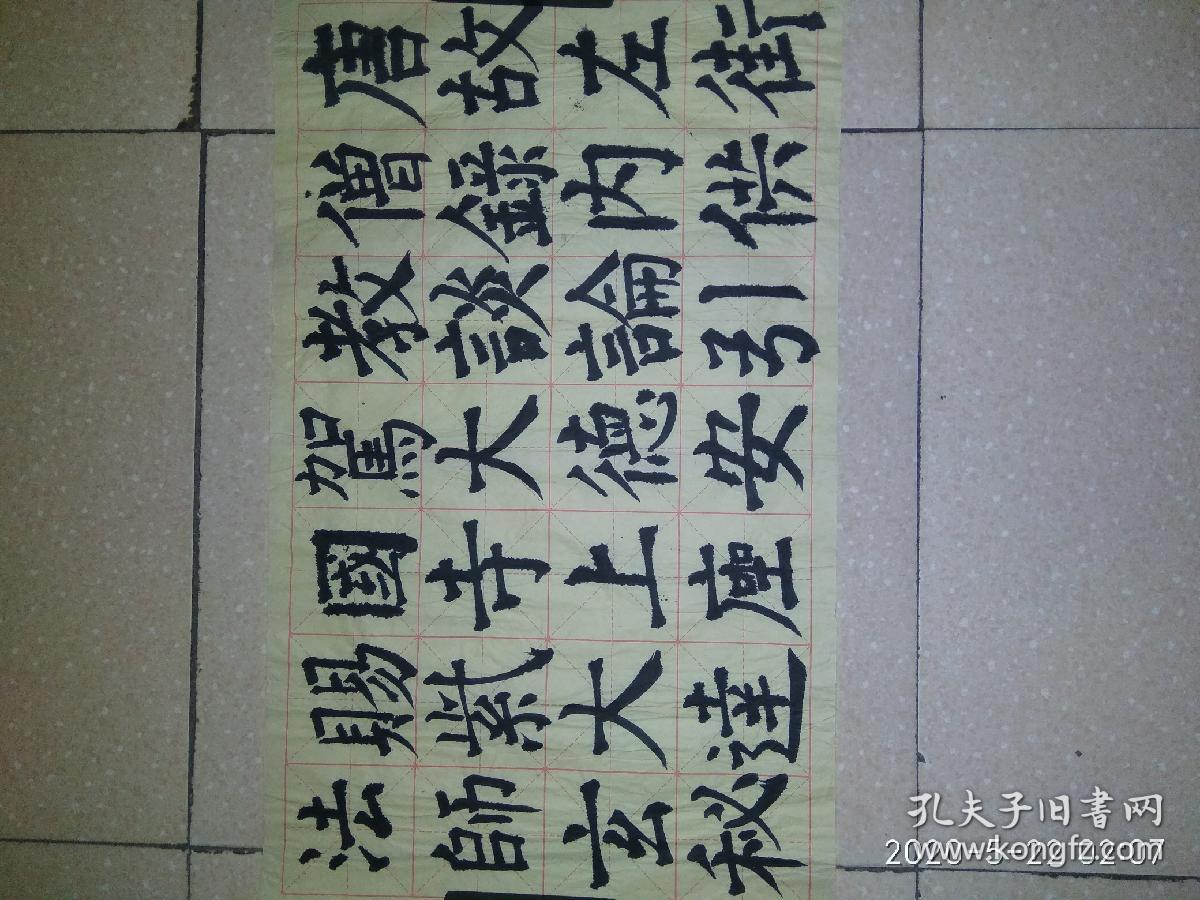 唐故左街
僧録内供
教談論引
駕大德安
國寺上座
賜紫大達
法師玄秘
孔夫子旧書网
www.kongfz.com
2020-5-22 02:07